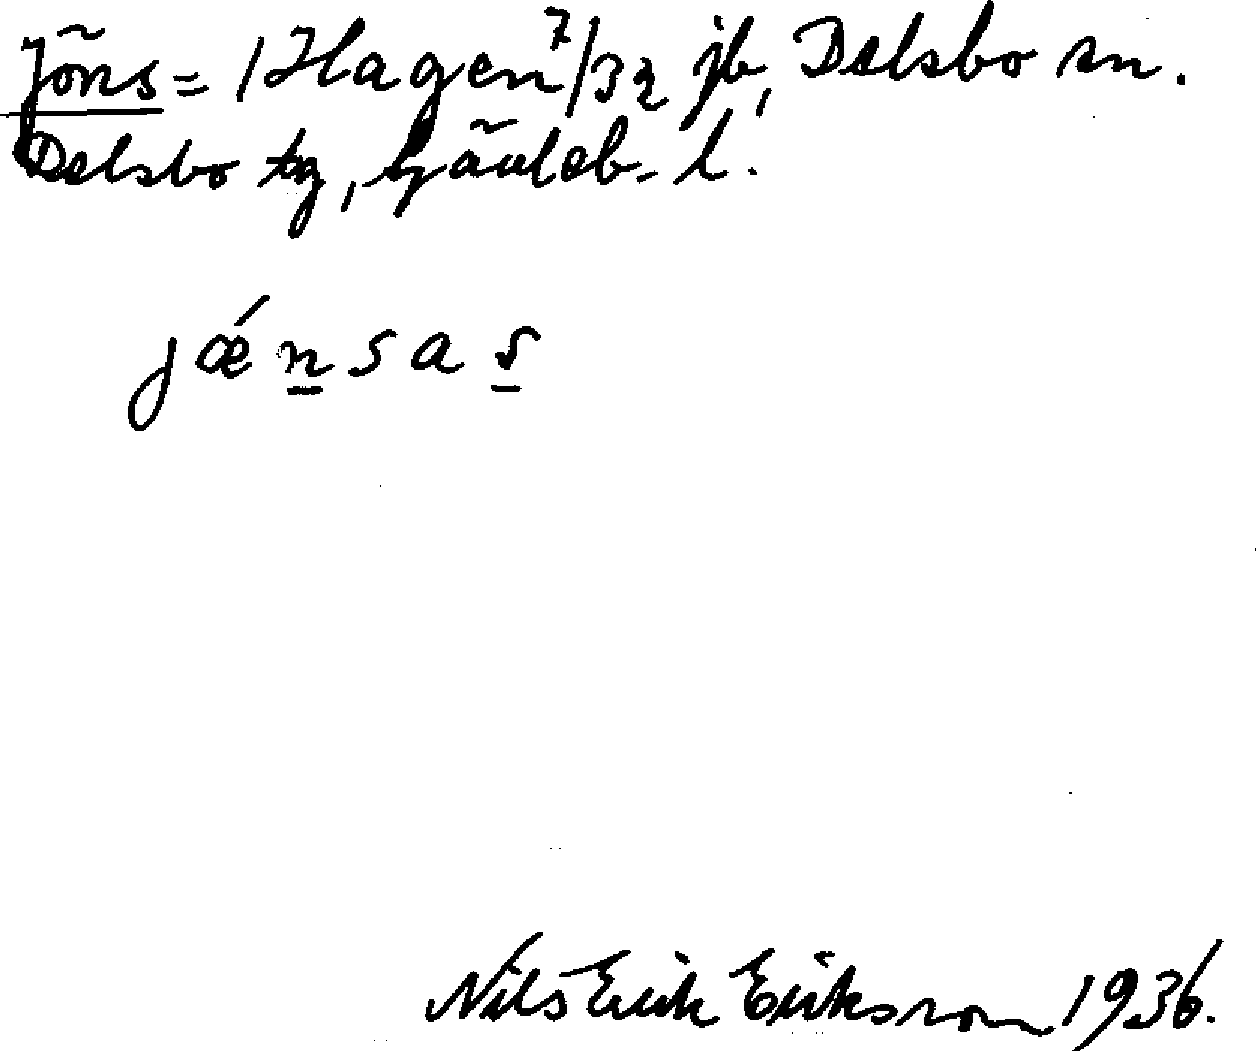 Jöns = 1 Hagen 7/32 jb, Delsbo sn.
Delsbo tg, Gävleb. l.
jǽnsas
Nils Erik Eriksson 1936.